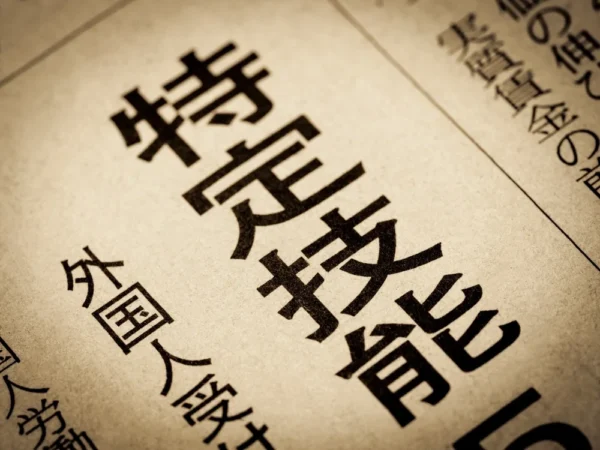 の伸び
実質賃金の
特定技能5
外国人受け
国人労働